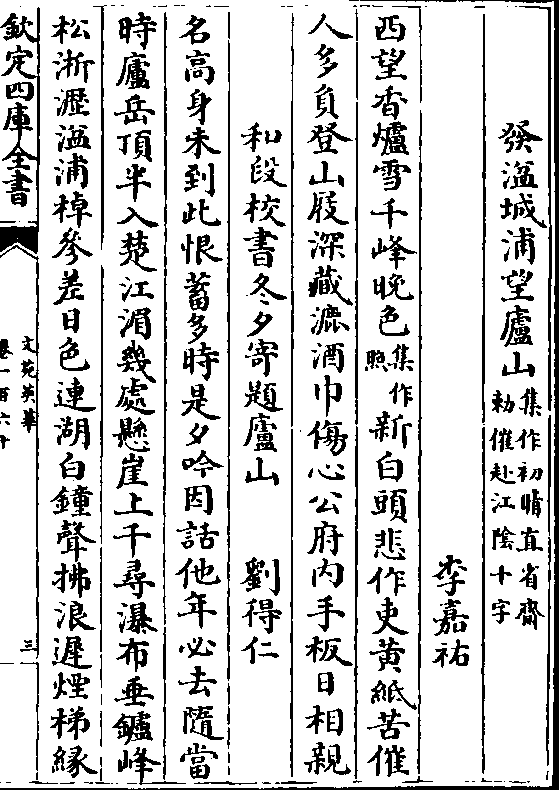 發湓城浦望廬山集作初晴直省齋勅催赴江陰十字
李嘉祐
西望香爐雪千峰晚色集作照新白頭悲作吏黄紙苦催
人多負登山屐深藏漉酒巾傷心公府内手板日相親
和段校書冬夕寄題廬山 劉得仁
名高身未到此恨蓄多時是夕吟因話他年必去隨當
時廬岳頂半入楚江湄幾處懸崖上千尋瀑布垂鑪峰
松淅瀝湓浦棹參差日色連湖白鐘聲拂浪遲煙梯緣
欽定四庫全書
文苑英華
卷一百六十
三